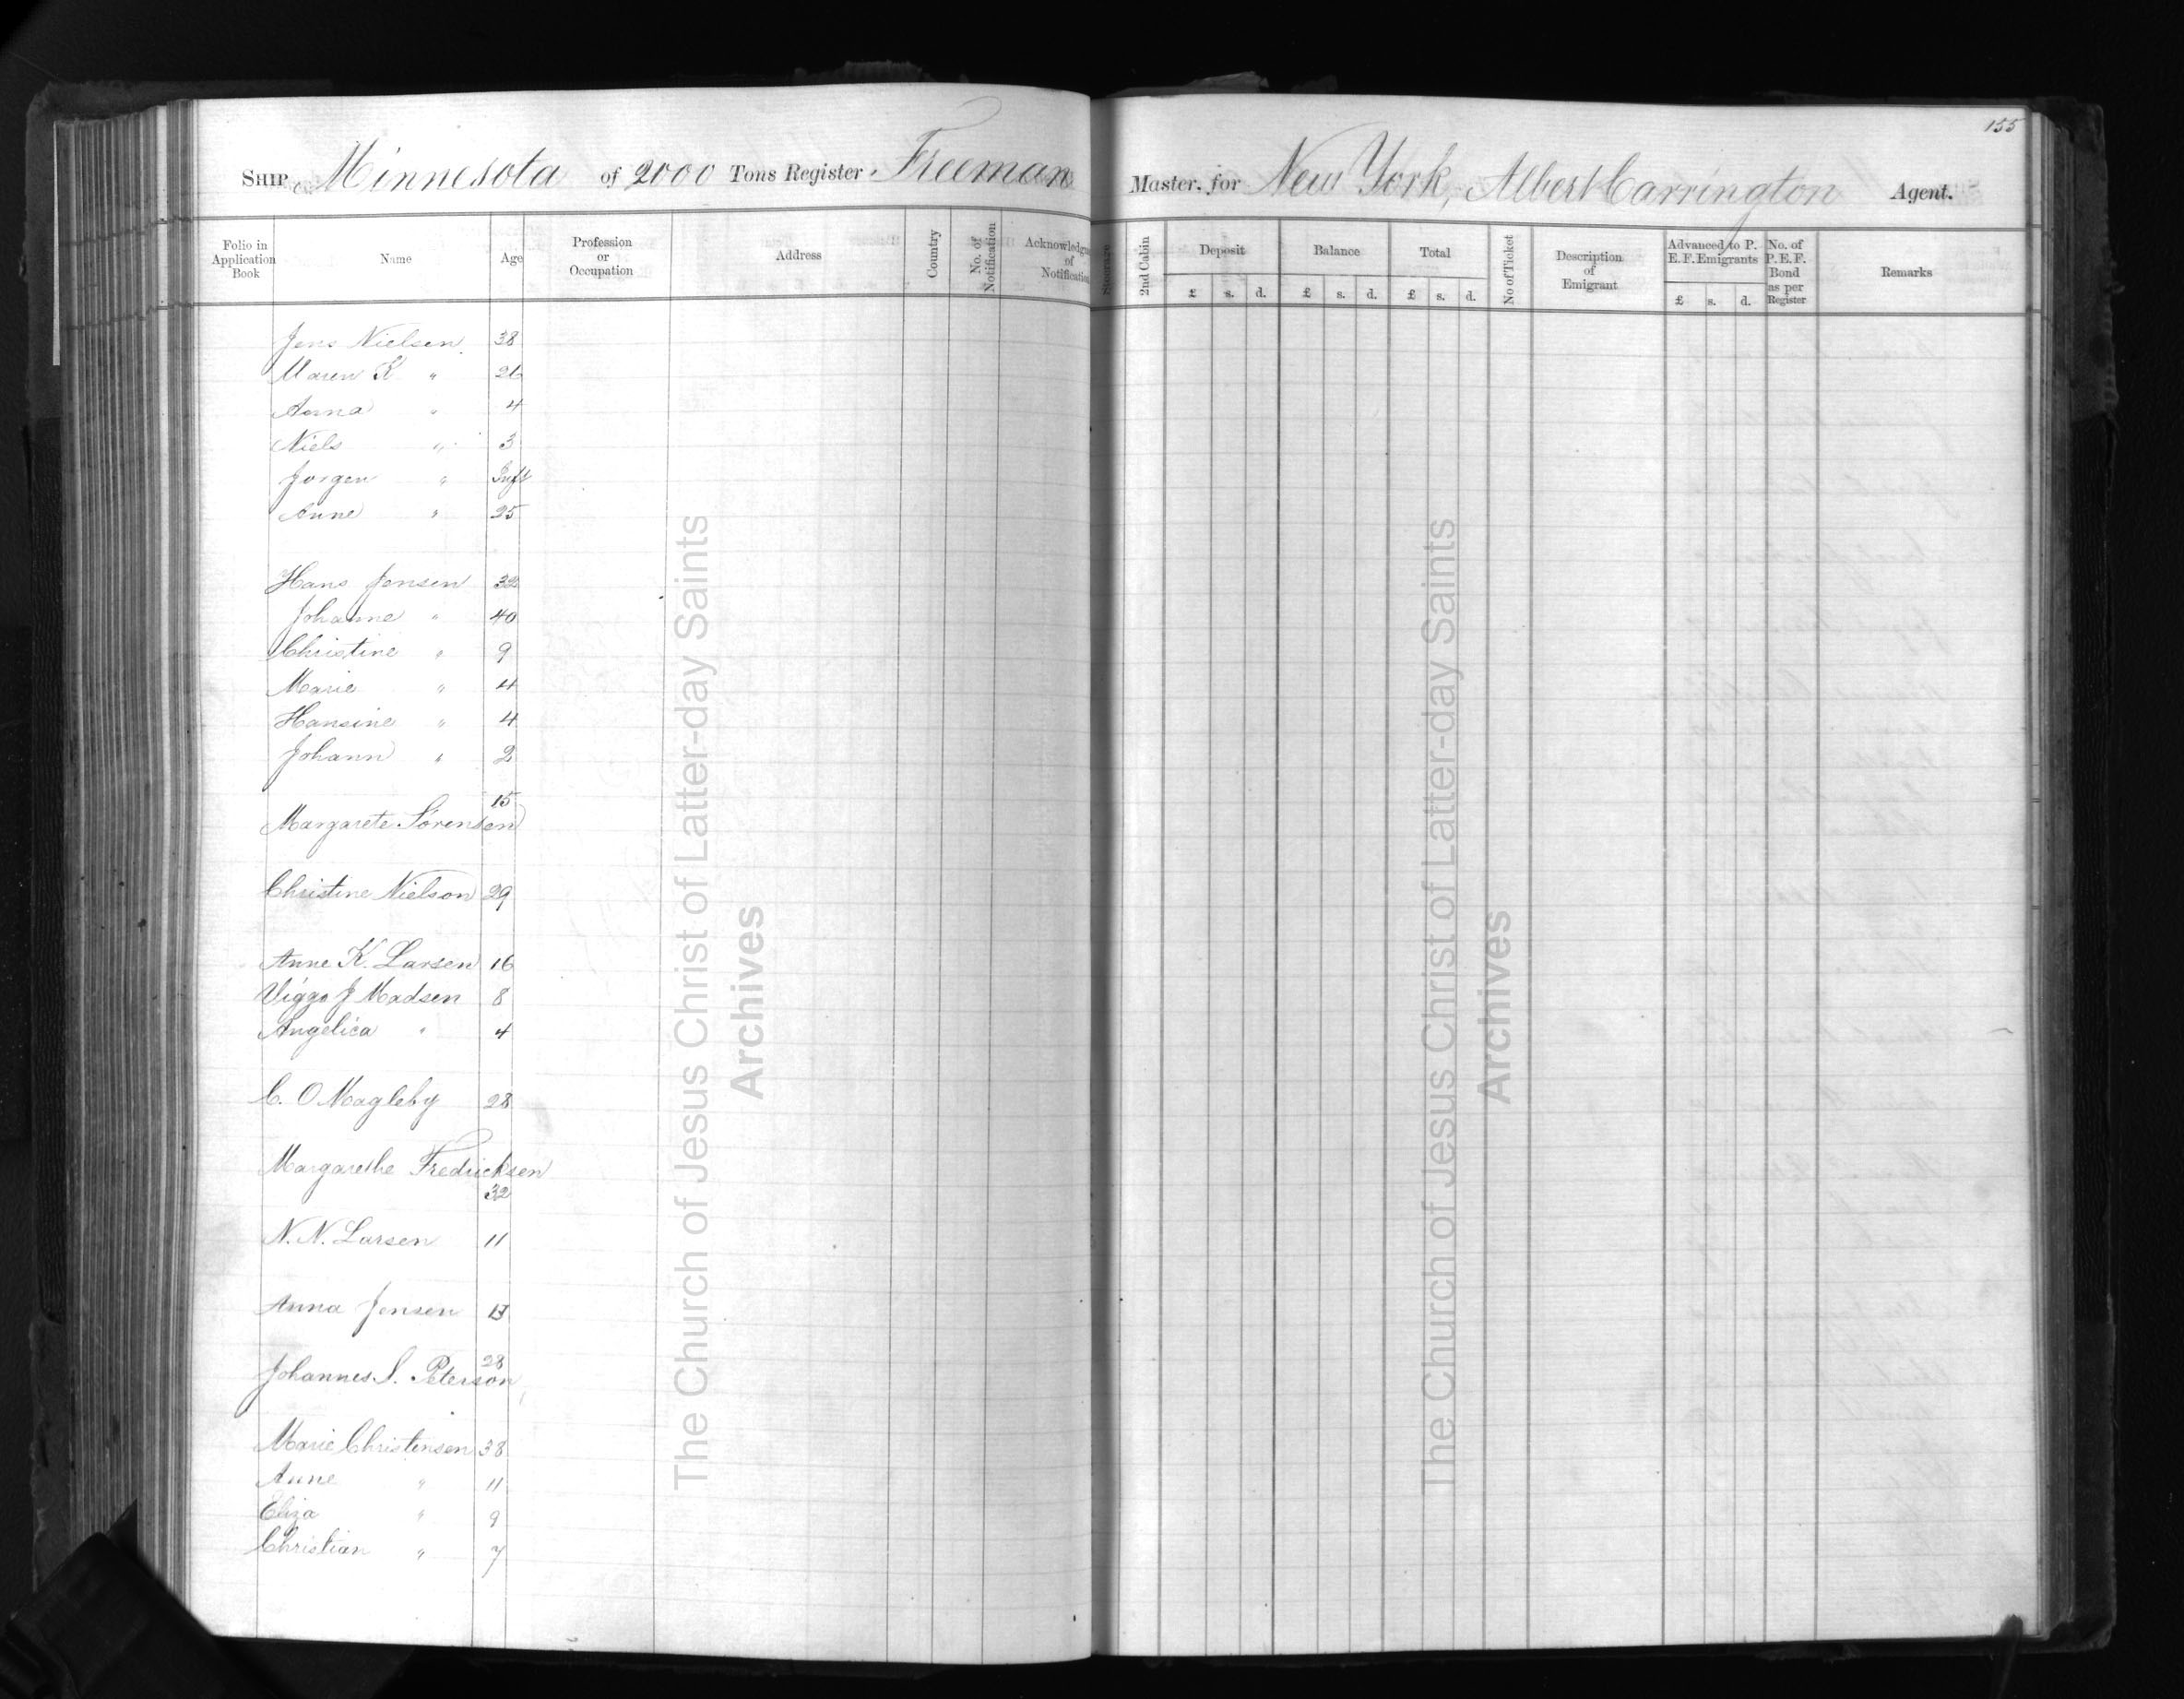 155
SHIP Minnesota of 2000 Tons Register Freeman Master, for New York, Albert Carrington Agent.
Folio in Application Book
Name
Age
Profession or Occupation
Address
Country
No. of Notification
Acknowledgm of Notification
Steerage
2nd Cabin
Deposit
£ s. d.
Balance
£ s. d.
Total
£ s. d.
No of Ticket
Description of Emigrant
Advanced to P. E. F. Emigrants
£ s. d.
No. of P. E. F. Bond as per Register
Remarks
Jens Nielsen 38
Maren K " 26
Anna " 4
Niels " 3
Jorgen " Inft
Anne " 25
Hans Jensen 32
Johanne " 40
Christine " 9
Marie " 4
Hansine " 4
Johann " 2
15
Margarete Sorensen
Christine Nielson 29
Anne K. Larsen 16
Viggo J Madsen 8
Angelica " 4
C. O Magleby 28
Margarethe Fredricksen
32
N. N. Larsen 11
Anna Jensen 13
28
Johannes S. Peterson
Marie Christensen 38
Anne " 11
Eliza " 9
Christian " 7
The Church of Jesus Christ of Latter-day Saints
Archives
The Church of Jesus Christ of Latter-day Saints
Archives